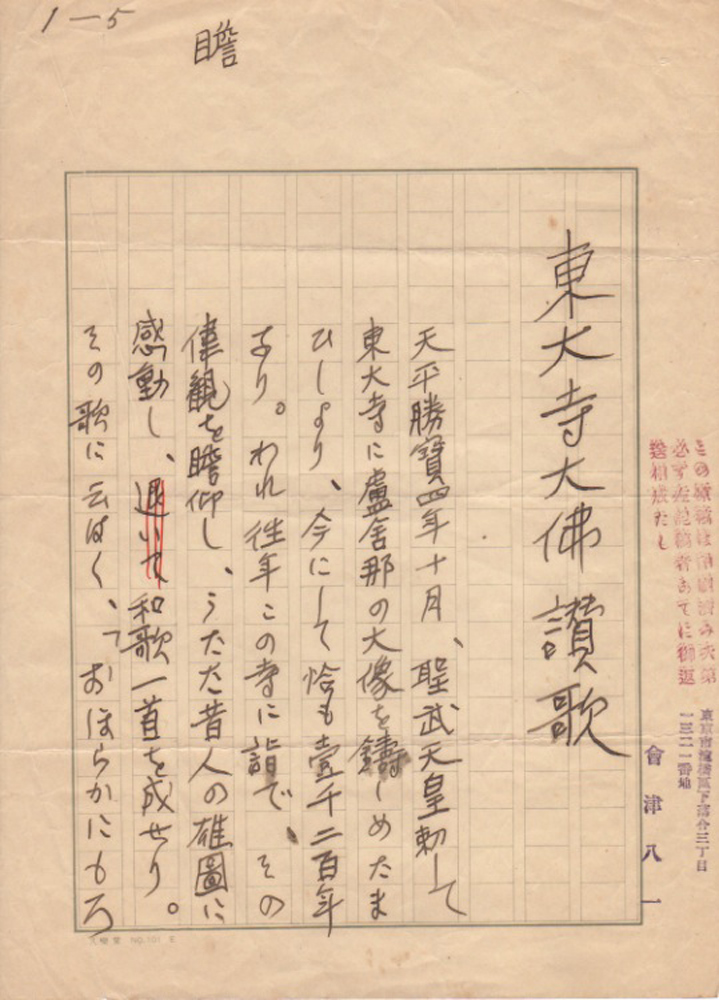 1-5
瞻
東大寺大佛讃歌
天平勝寶四年十月、聖武天皇勅して
東大寺に盧舎那の大像を鋳しめたま
ひしより、今にして恰も壹千二百年
なり。われ往年この寺に詣で、その
偉観を瞻仰し、うたた昔人の雄圖に
感動し、退いて和歌一首を成せり。
その歌に云はく、「おほらかにもろ
この原稿は印刷済み次第
必ず左記稿者あてに御返
送相成たし
東京市淀橋區下落合三丁目
一三二一番地
會津八一
NO.101